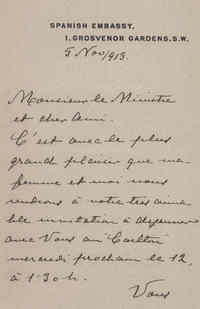 SPANISH EMBASSY,
1, GROSVENOR GARDENS, S.W.
5 Nov/913.
Monsieur le Ministre
et cher Ami.
C'est avec le plus
grand plaisir que ma
femme et moi nous
rendrons à votre très aima-
ble invitation à déjeuner
avec Vous au Carlton
mercredi prochain le 12,
à 1.30 h.
Vous